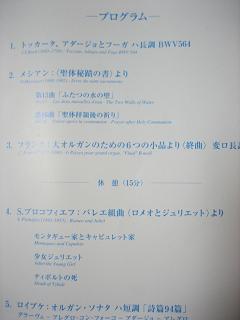 ―プログラム―
1. トッカータ、アダージョとフーガ ハ長調 BWV564
J.S.Bach (1685-1750) : Toccata, Adagio and Fuga BWV 564
2. メシアン：〈聖体秘蹟の書〉より
第13曲「ふたつの水の壁」
Les deux murailles d'eau - The Two Walls of Water
「聖体拝領後の祈り」
Prière après la communion - Prayer after Holy Communion
3. フランク：大オルガンのための6つの小品より〈終曲〉 変ロ長
6 Pièces pour grand orgue, "Final" B-moll
休 憩 (15分)
4. S.プロコフィエフ：バレエ組曲〈ロメオとジュリエット〉より
S.Prokofiev (1891-1953) : Romeo and Juliet
モンタギュー家とキャピュレット家
Montagues and Capulets
少女ジュリエット
Juliet the Young Girl
ティボルトの死
Death of Tybalt
5. ロイブケ：オルガン・ソナタ ハ短調「詩篇94篇」
グラーヴェ - アレグロ・コン・フォーコ - アダージョ - アレグロ